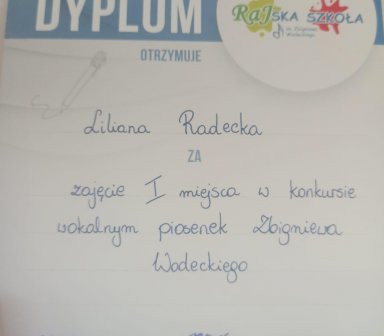 DYPLOM
RAJSKA SZKOŁA
im. Zbigniewa
Wodeckiego
OTRZYMUJE
Liliana Radecka
ZA
zajęcie I miejsca w konkursie
wokalnym piosenek Zbigniewa
Wodeckiego